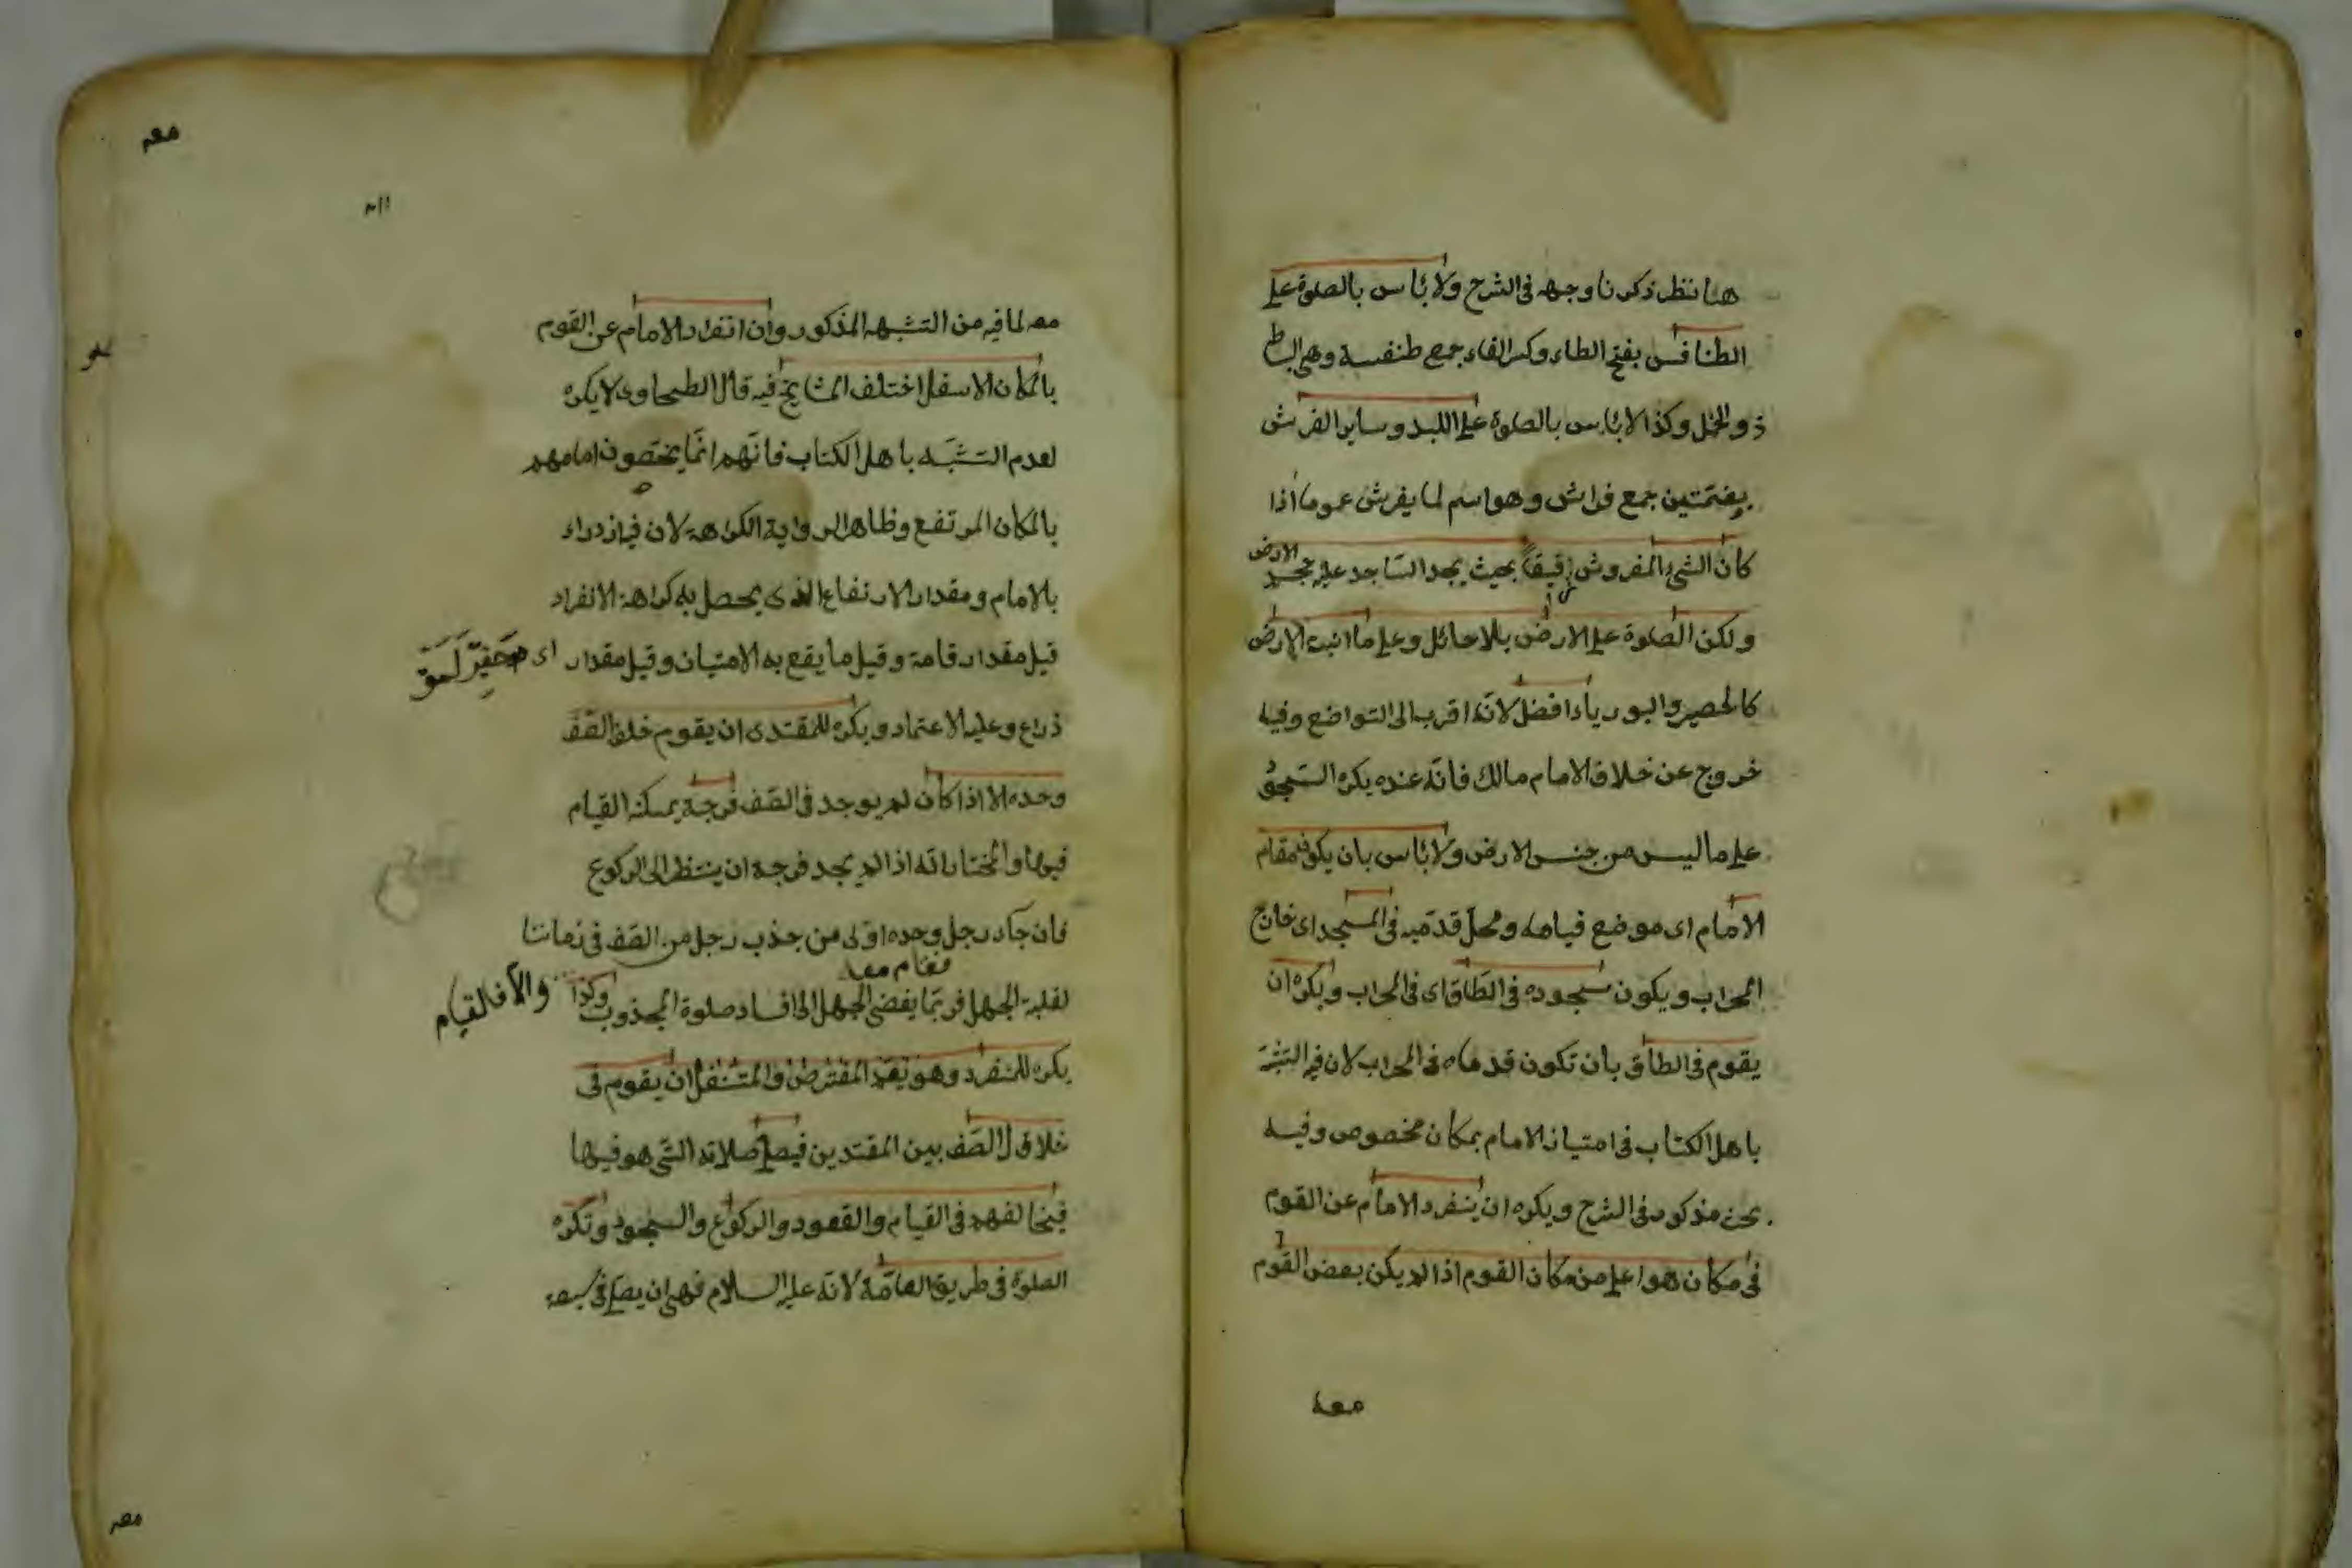 هنا نظر ذكرنا وجهه فى الشرح ولا باس بالصلوة على
الطنافس بفتح الطاء وكسر الفاء جمع طنفسة وهى البساط
ذو الخمل وكذا لا باس بالصلوة على اللبد وساير الفرش
بضمتين جمع فراش وهو اسم لما يفرش عموما اذا
كان الشئ المفروش رقيقا بحيث يجد الساجد عليه حجم الارض
ولكن الصلوة على الارض بلا حائل وعلى ما انبت الارض
كالحصير والبورياء افضل لانه اقرب الى التواضع وفيه
خروج عن خلاف الامام مالك فانه عنده يكره السجود
على ما ليس من جنس الارض ولا باس بان يكون مقام
الامام اى موضع قيامه ومحل قدميه فى المسجد اى خارج
المحراب ويكون سجوده فى الطاق اى فى المحراب ويكره ان
يقوم فى الطاق بان تكون قدماه فى المحراب لان فيه التشبه
باهل الكتاب فى امتياز الامام بمكان مخصوص وفيه
بحث مذكور فى الشرح ويكره ان ينفرد الامام عن القوم
فى مكان هو اعلى من مكان القوم اذا لم يكن بعض القوم
معه
معه لما فيه من التشبه المذكور وان انفراد الامام عن القوم
بالمكان الاسفل اختلف المشايخ فيه قال الطحاوى لا يكره
لعدم التشبه باهل الكتاب فانهم انما يخصون امامهم
بالمكان المرتفع وظاهر الرواية الكراهة لان فيه ازدراء
بالامام ومقدار الارتفاع الذى يحصل به كراهة الانفراد
قيل مقدار قامة وقيل ما يقع به الامتيان وقيل مقدار اى
ذراع وعليه الاعتماد ويكره للمقتدى ان يقوم خلف الصف
وحده الا اذا كان لم يوجد فى الصف فرجة يمكنه القيام
فيها والمختار انه اذا لم يجد فرجة ان ينتظر الى الركوع
فان جاء رجل وحده اولى من جذب رجل من الصف فى زماننا
فقام معه
لغلبة الجهل فربما يفضى الجهل الى افساد صلوة المجذوب وكذا والا فالقيام
يكره للمنفرد وهو يعم المفترض والمتنفل ان يقوم فى
خلال الصف بين المقتدين فيصلى صلاته التى هو فيها
فيخالفهم فى القيام والقعود والركوع والسجود وتكره
الصلوة فى طريق العامة لانه عليه السلام نهى ان يصلى فى سبعة